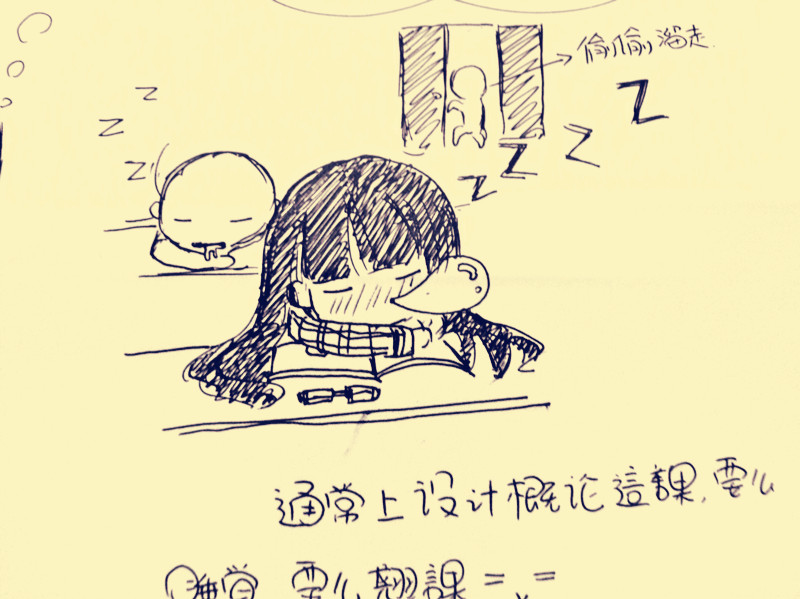 偷偷溜走
Z
Z
Z
Z
Z
Z
Z
通常上设计概论這課,要么
睡觉 要么翘課 =、=